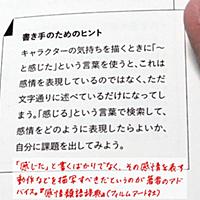 書き手のためのヒント
キャラクターの気持ちを描くときに「〜
と感じた」という言葉を使うと、これは
感情を表現しているのではなく、ただ
文字通りに述べているだけになってし
まう。「感じる」という言葉で検索して、
感情をどのように表現したらよいか、
自分に課題を出してみよう。
「感じた」と書くばかりでなく、その感情を表す
動作などを描写すべきだというのが著者のアド
バイス。『感情類語辞典』(フィルムアート社)